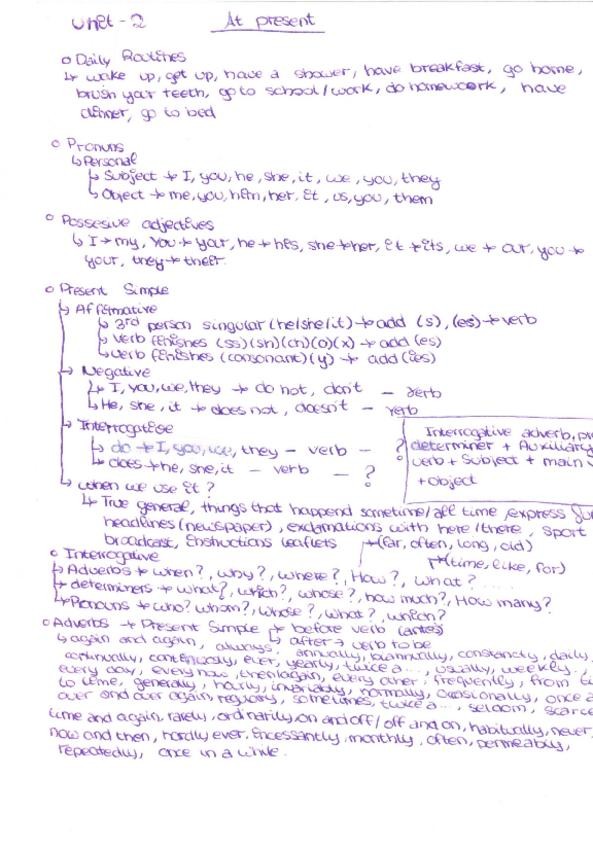 Unit-2 At present
o Daily Routines
↳ wake up, get up, have a shower, have breakfast, go home,
brush your teeth, go to school/work, do homework, have
dinner, go to bed
o Pronuns
↳ Personal
↳ Subject → I, you, he, she, it, we, you, they
↳ Object → me, you, him, her, it, us, you, them
o Possesive adjectives
↳ I → my, you → your, he → his, she → her, it → its, we → our, you →
your, they → their.
o Present Simple
↳ Affirmative
↳ 3rd person singular (he/she/it) → add (s), (es) → verb
↳ verb finishes (ss)(sh)(ch)(o)(x) → add (es)
↳ verb finishes (consonant)(y) → add (ies)
→ Negative
↳ I, you, we, they → do not, don't - verb
↳ He, she, it → does not, doesn't - verb
→ Interrogative
↳ do → I, you, we, they - verb - ?
↳ does → he, she, it - verb - ?
Interrogative adverb, pr
determiner + Auxiliary
verb + Subject + main
+ object
↳ when we use it?
↳ True general, things that happend sometime/all time, express
headlines (newspaper), exclamations with here/there, sport
broadcast, instructions leaflets → (far, often, long, old)
o Interrogative → (time, like, for)
↳ Adverbs → when?, why?, where?, How?, what? ......
→ determiners → what?, which?, whose?, how much?, How many?
↳ Pronouns → who? whom?, whose?, what?, which?
o Adverbs → Present Simple → before verb (antes)
↳ after → verb to be
↳ again and again, always, annually, biannually, constantly, daily,
continually, continuously, ever, yearly, twice a..., usually, weekly
every day, every now, then/again, every other, frequently, from
to time, generally, hourly, invariably, normally, occasionally, once a
over and over again, regulary, sometimes, twice a..., seldom, scarce
time and again, rarely, ordinarily, on and off/off and on, habitually, never,
now and then, hardly ever, incessantly, monthly, often, permeabily,
repeatedly, once in a while.